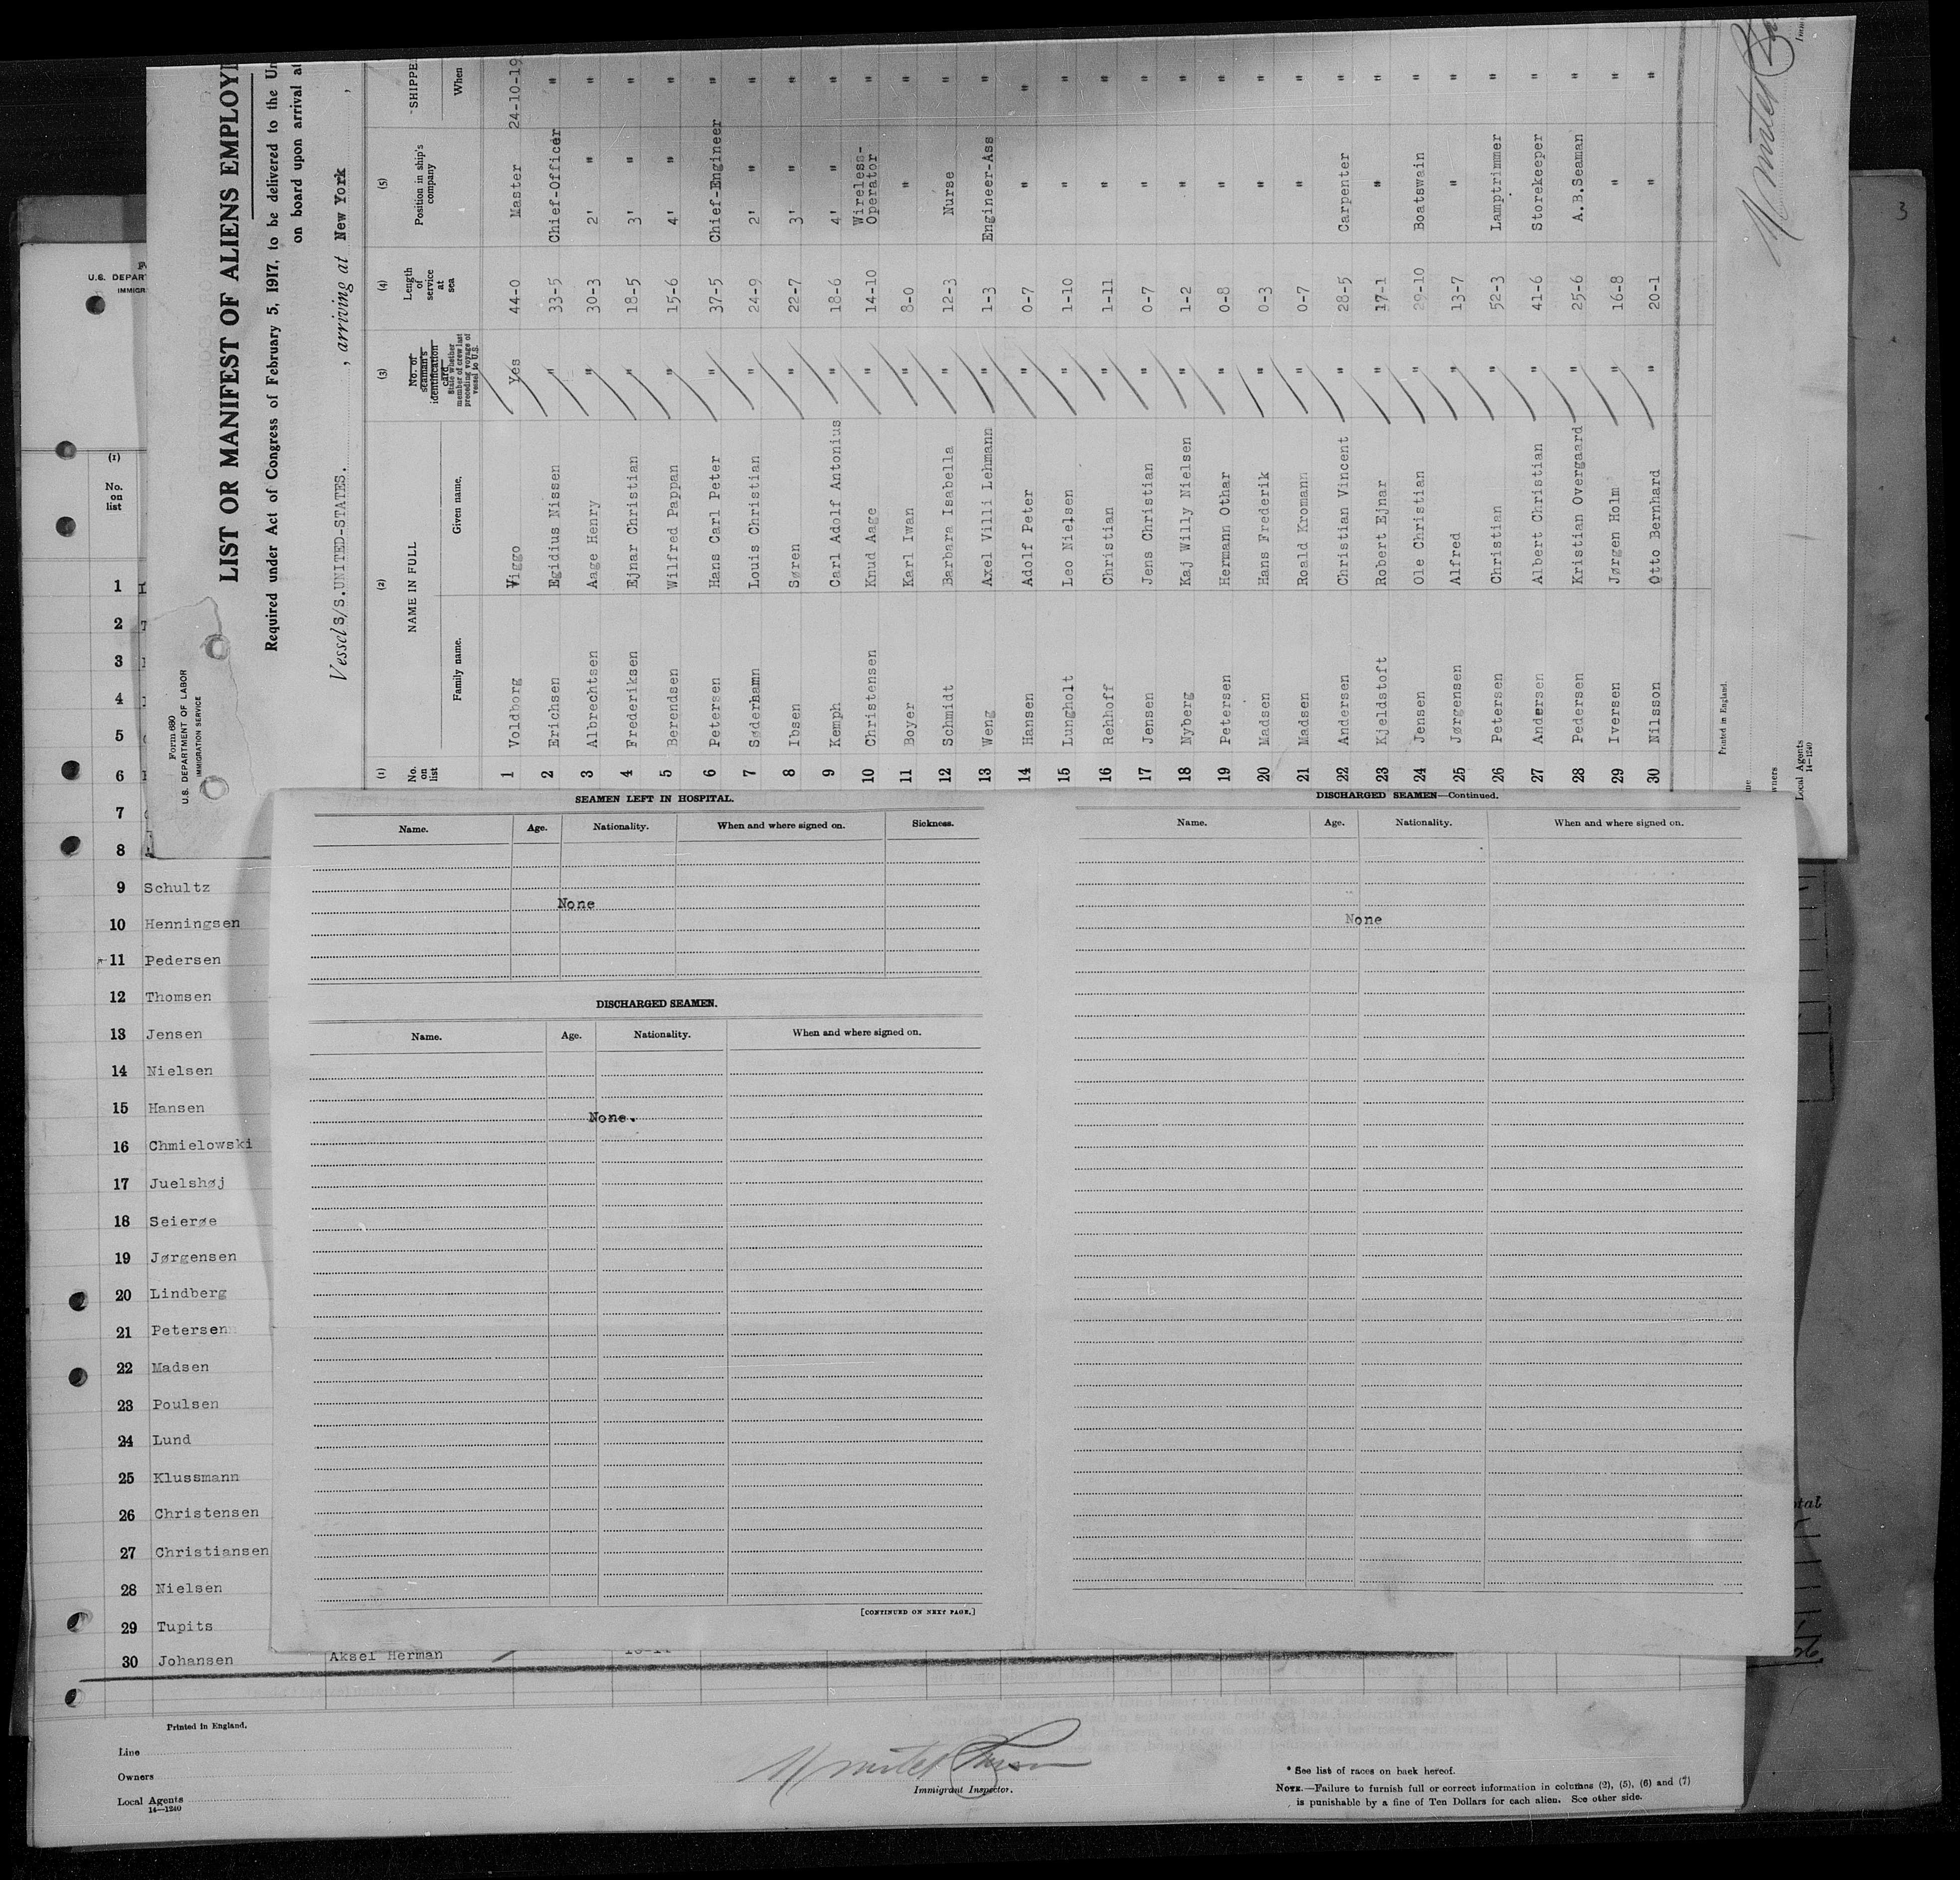 LIST OR MANIFEST OF ALIENS EMPLOY
Required under Act of Congress of February 5, 1917, to be delivered to the Un
on board upon arrival at
Vessel S/S.UNITED-STATES. , arriving at New York ,
Form 680
U.S. DEPARTMENT OF LABOR
IMMIGRATION SERVICE
(1) (2) (3) (4) (5)
No. on list NAME IN FULL No. of seaman's identification card State whether member of crew last preceding voyage of vessel to U.S. Length of service at sea Position in ship's company SHIPPE
Family name. Given name. When
1 Voldborg Viggo Yes 44-0 Master 24-10-19
2 Erichsen Egidius Nissen " 33-5 Chief-Officer "
3 Albrechtsen Aage Henry " 30-3 2' " "
4 Frederiksen Ejnar Christian " 18-5 3' " "
5 Berendsen Wilfred Pappan " 15-6 4' " "
6 Petersen Hans Carl Peter " 37-5 Chief-Engineer "
7 Søderhamn Louis Christian " 24-9 2' " "
8 Ibsen Søren " 22-7 3' " "
9 Kemph Carl Adolf Antonius " 18-6 4' " "
10 Christensen Knud Aage " 14-10 Wireless-Operator "
11 Boyer Karl Iwan " 8-0 " "
12 Schmidt Barbara Isabella " 12-3 Nurse "
13 Weng Axel Villi Lehmann " 1-3 Engineer-Ass "
14 Hansen Adolf Peter " 0-7 " "
15 Lungholt Leo Nielsen " 1-10 " "
16 Rehhoff Christian " 1-11 " "
17 Jensen Jens Christian " 0-7 " "
18 Nyberg Kaj Willy Nielsen " 1-2 " "
19 Petersen Hermann Othar " 0-8 " "
20 Madsen Hans Frederik " 0-3 " "
21 Madsen Roald Kromann " 0-7 " "
22 Andersen Christian Vincent " 28-5 Carpenter "
23 Kjeldstoft Robert Ejnar " 17-1 " "
24 Jensen Ole Christian " 29-10 Boatswain "
25 Jørgensen Alfred " 13-7 " "
26 Petersen Christian " 52-3 Lamptrimmer "
27 Andersen Albert Christian " 41-6 Storekeeper "
28 Pedersen Kristian Overgaard " 25-6 A.B.Seaman "
29 Iversen Jørgen Holm " 16-8 " "
30 Nilsson Otto Bernhard " 20-1 " "
Printed in England.
Local Agents
14—1240
U.S. DEPART
IMMIGR
(1)
No. on list
1
2
3
4
5
6
7
8
9 Schultz
10 Henningsen
11 Pedersen
12 Thomsen
13 Jensen
14 Nielsen
15 Hansen
16 Chmielowski
17 Juelshøj
18 Seierøe
19 Jørgensen
20 Lindberg
21 Petersen
22 Madsen
23 Poulsen
24 Lund
25 Klussmann
26 Christensen
27 Christiansen
28 Nielsen
29 Tupits
30 Johansen Aksel Herman
SEAMEN LEFT IN HOSPITAL.
Name. Age. Nationality. When and where signed on. Sickness.
None
DISCHARGED SEAMEN.
Name. Age. Nationality. When and where signed on.
None.
[CONTINUED ON NEXT PAGE.]
DISCHARGED SEAMEN—Continued.
Name. Age. Nationality. When and where signed on.
None
3
Printed in England.
Line
Owners
Local Agents
14—1240
Immigrant Inspector.
* See list of races on back hereof.
NOTE.—Failure to furnish full or correct information in columns (2), (5), (6) and (7)
is punishable by a fine of Ten Dollars for each alien. See other side.